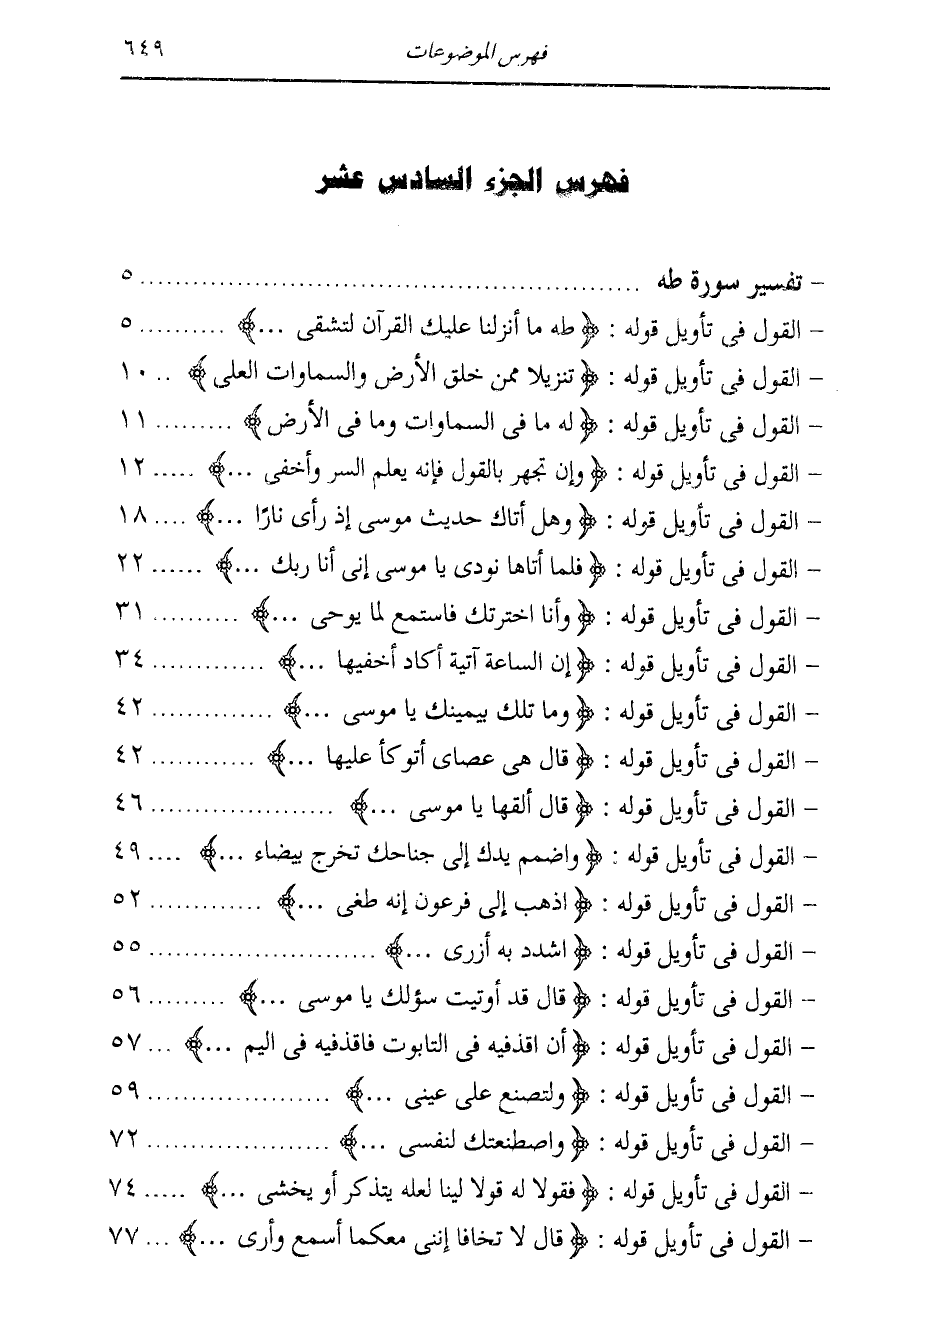 فهرس الموضوعات ٦٤٩
فهرس الجزء السادس عشر
– تفسير سورة طه ........................................................ ٥
– القول فى تأويل قوله : ﴿ طه ما أنزلنا عليك القرآن لتشقى ... ﴾ .......... ٥
– القول فى تأويل قوله : ﴿ تنزيلا ممن خلق الأرض والسماوات العلى ﴾ .. ١٠
– القول فى تأويل قوله : ﴿ له ما فى السماوات وما فى الأرض ﴾ ......... ١١
– القول فى تأويل قوله : ﴿ وإن تجهر بالقول فإنه يعلم السر وأخفى ... ﴾ ..... ١٢
– القول فى تأويل قوله : ﴿ وهل أتاك حديث موسى إذ رأى نارًا ... ﴾ .... ١٨
– القول فى تأويل قوله : ﴿ فلما أتاها نودى يا موسى إنى أنا ربك ... ﴾ ...... ٢٢
– القول فى تأويل قوله : ﴿ وأنا اخترتك فاستمع لما يوحى ... ﴾ .......... ٣١
– القول فى تأويل قوله : ﴿ إن الساعة آتية أكاد أخفيها ... ﴾ ............. ٣٤
– القول فى تأويل قوله : ﴿ وما تلك بيمينك يا موسى ... ﴾ .............. ٤٢
– القول فى تأويل قوله : ﴿ قال هى عصاى أتوكأ عليها ... ﴾ ............ ٤٢
– القول فى تأويل قوله : ﴿ قال ألقها يا موسى ... ﴾ ..................... ٤٦
– القول فى تأويل قوله : ﴿ واضمم يدك إلى جناحك تخرج بيضاء ... ﴾ .... ٤٩
– القول فى تأويل قوله : ﴿ اذهب إلى فرعون إنه طغى ... ﴾ ............. ٥٢
– القول فى تأويل قوله : ﴿ اشدد به أزرى ... ﴾ .......................... ٥٥
– القول فى تأويل قوله : ﴿ قال قد أوتيت سؤلك يا موسى ... ﴾ ......... ٥٦
– القول فى تأويل قوله : ﴿ أن اقذفيه فى التابوت فاقذفيه فى اليم ... ﴾ ... ٥٧
– القول فى تأويل قوله : ﴿ ولتصنع على عينى ... ﴾ ..................... ٥٩
– القول فى تأويل قوله : ﴿ واصطنعتك لنفسى ... ﴾ ..................... ٧٢
– القول فى تأويل قوله : ﴿ فقولا له قولا لينا لعله يتذكر أو يخشى ... ﴾ ..... ٧٤
– القول فى تأويل قوله : ﴿ قال لا تخافا إننى معكما أسمع وأرى ... ﴾ ... ٧٧